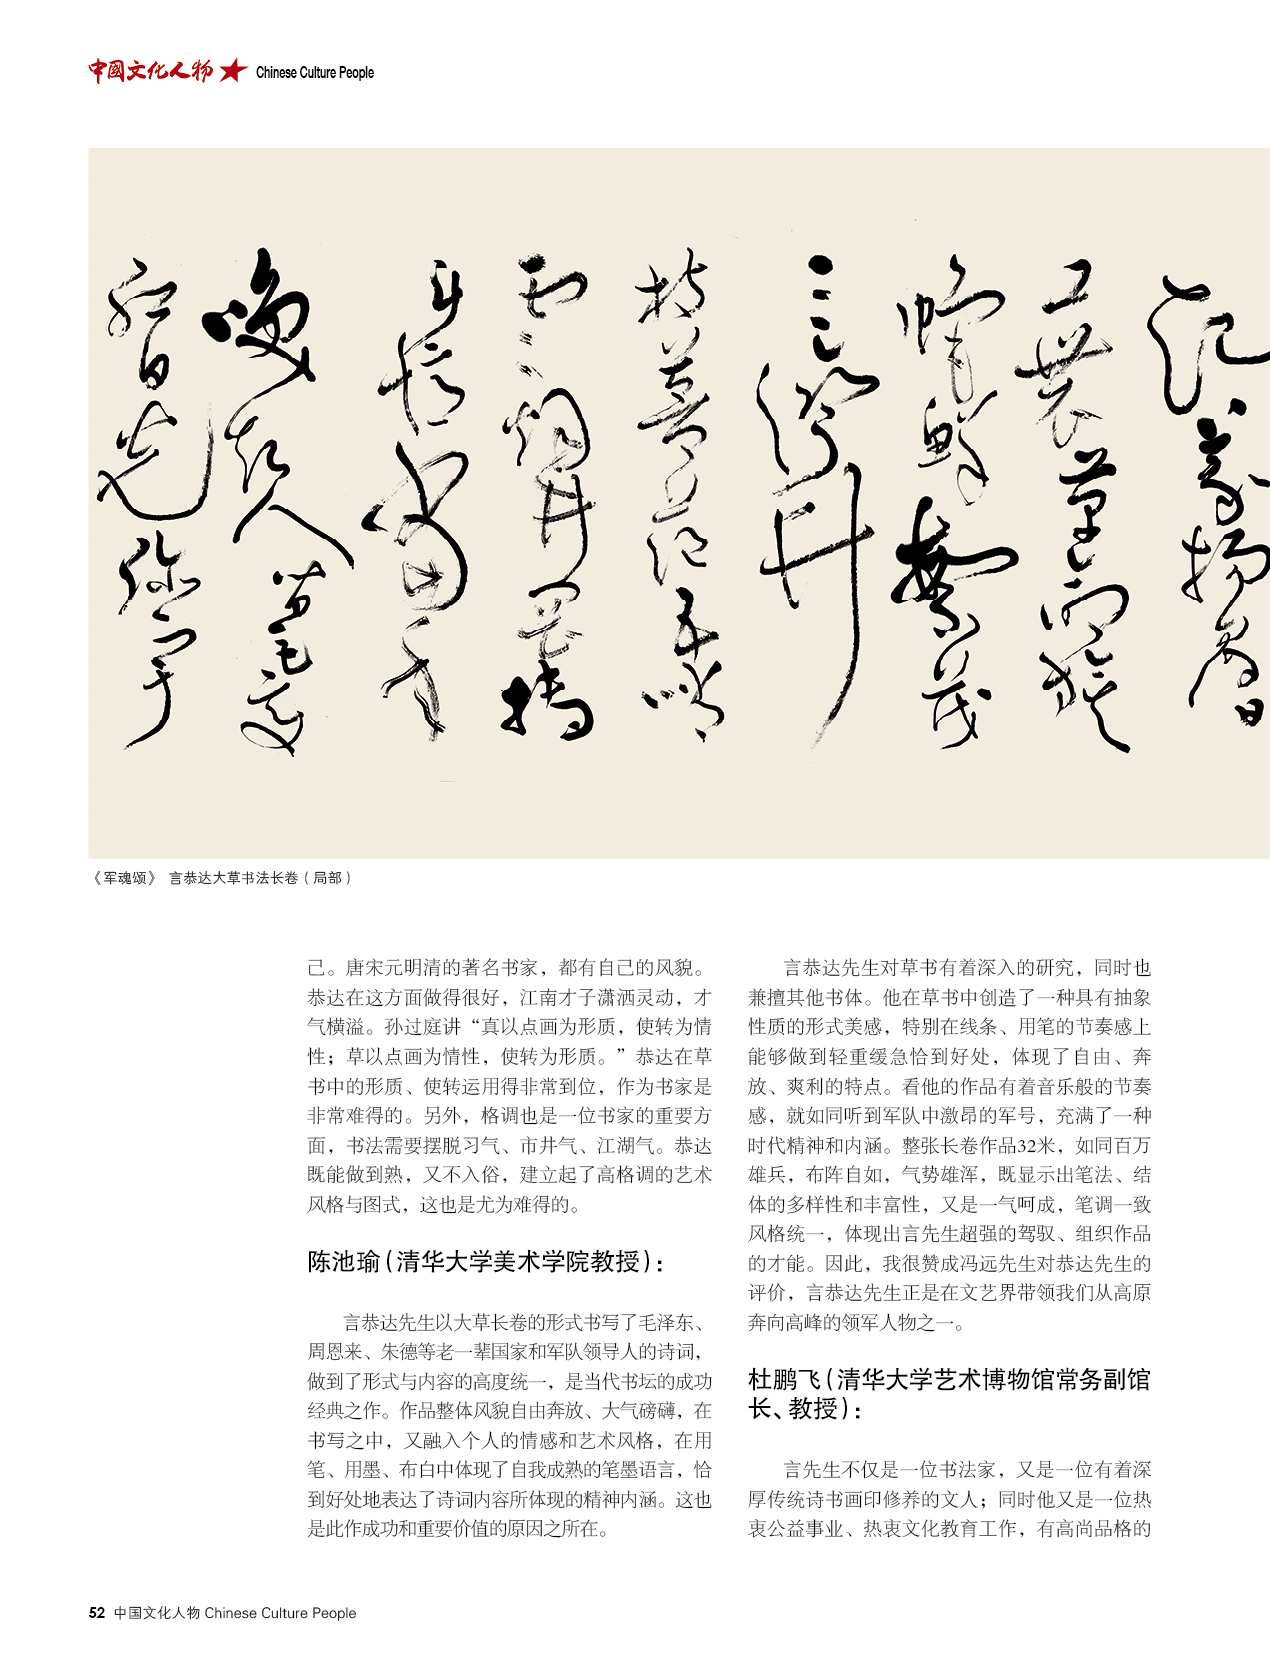 中國文化人物 Chinese Culture People
《军魂颂》 言恭达大草书法长卷（局部）
己。唐宋元明清的著名书家，都有自己的风貌。
恭达在这方面做得很好，江南才子潇洒灵动，才
气横溢。孙过庭讲“真以点画为形质，使转为情
性；草以点画为情性，使转为形质。”恭达在草
书中的形质、使转运用得非常到位，作为书家是
非常难得的。另外，格调也是一位书家的重要方
面，书法需要摆脱习气、市井气、江湖气。恭达
既能做到熟，又不入俗，建立起了高格调的艺术
风格与图式，这也是尤为难得的。
陈池瑜（清华大学美术学院教授）：
言恭达先生以大草长卷的形式书写了毛泽东、
周恩来、朱德等老一辈国家和军队领导人的诗词，
做到了形式与内容的高度统一，是当代书坛的成功
经典之作。作品整体风貌自由奔放、大气磅礴，在
书写之中，又融入个人的情感和艺术风格，在用
笔、用墨、布白中体现了自我成熟的笔墨语言，恰
到好处地表达了诗词内容所体现的精神内涵。这也
是此作成功和重要价值的原因之所在。
言恭达先生对草书有着深入的研究，同时也
兼擅其他书体。他在草书中创造了一种具有抽象
性质的形式美感，特别在线条、用笔的节奏感上
能够做到轻重缓急恰到好处，体现了自由、奔
放、爽利的特点。看他的作品有着音乐般的节奏
感，就如同听到军队中激昂的军号，充满了一种
时代精神和内涵。整张长卷作品32米，如同百万
雄兵，布阵自如，气势雄浑，既显示出笔法、结
体的多样性和丰富性，又是一气呵成，笔调一致
风格统一，体现出言先生超强的驾驭、组织作品
的才能。因此，我很赞成冯远先生对恭达先生的
评价，言恭达先生正是在文艺界带领我们从高原
奔向高峰的领军人物之一。
杜鹏飞（清华大学艺术博物馆常务副馆
长、教授）：
言先生不仅是一位书法家，又是一位有着深
厚传统诗书画印修养的文人；同时他又是一位热
衷公益事业、热衷文化教育工作，有高尚品格的
52 中国文化人物 Chinese Culture People